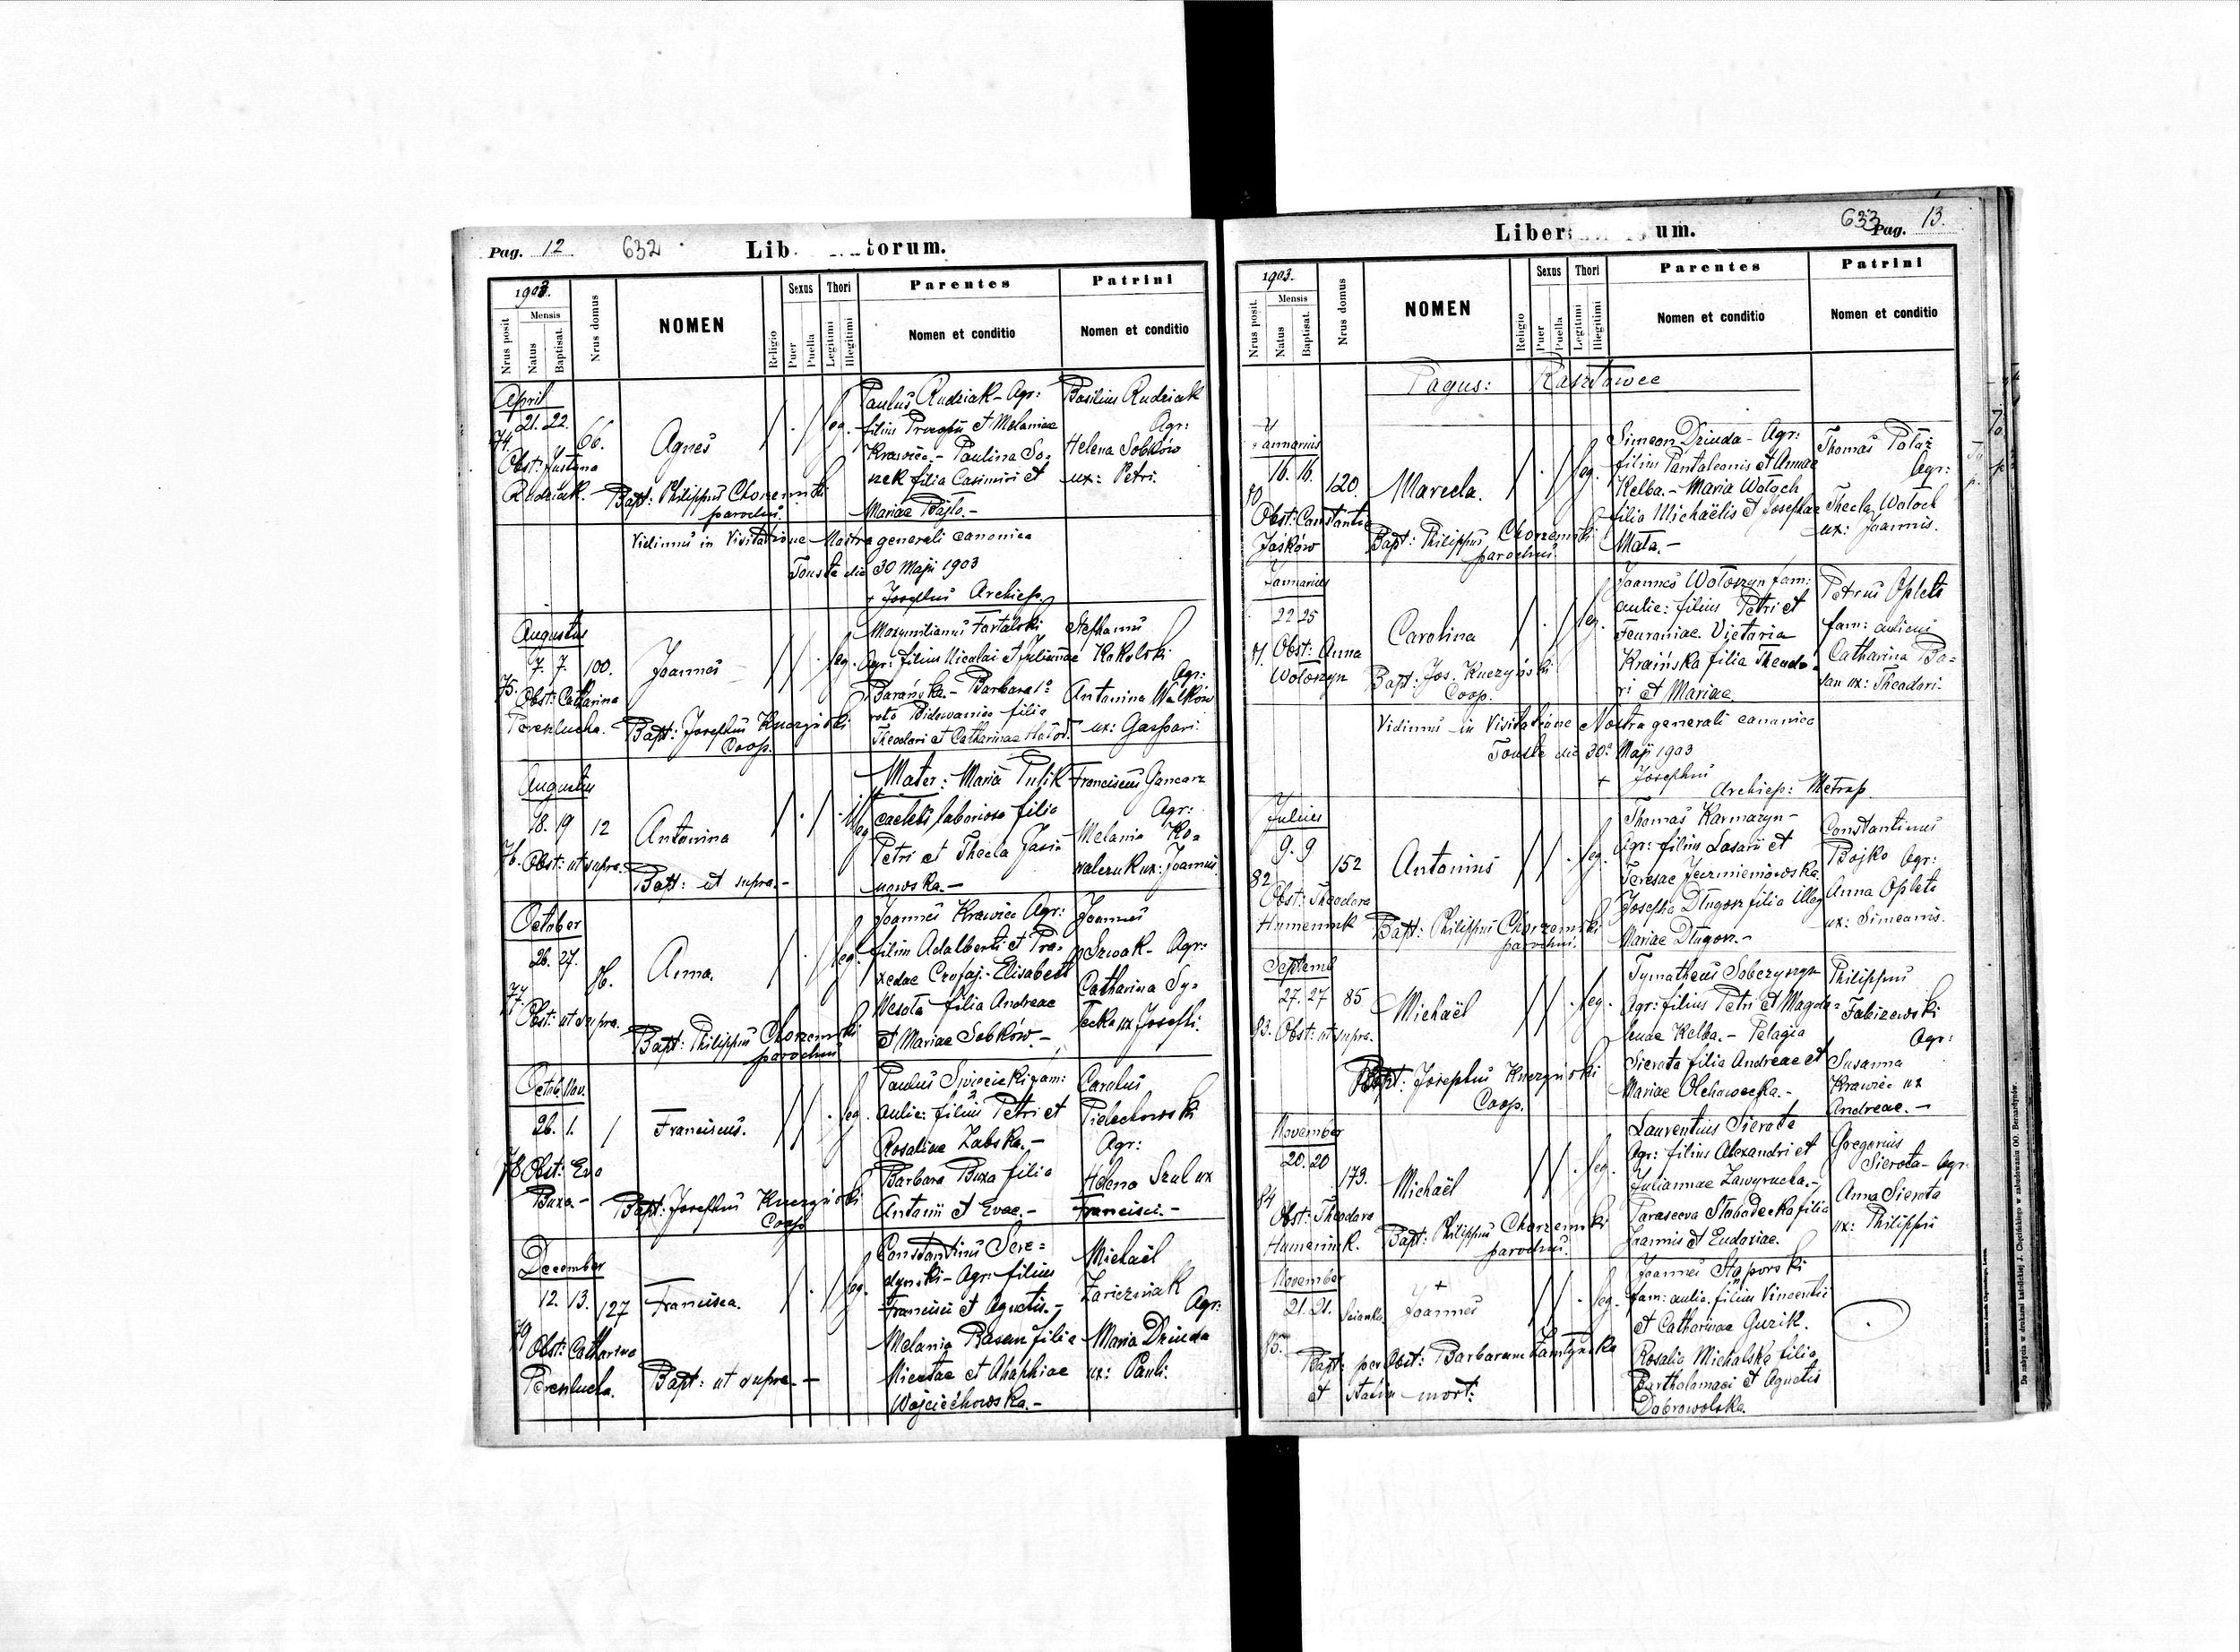 Pag. 12 632 Lib. torum.
1903.
Nrus posit
Mensis
Natus
Baptisat.
Nrus domus
NOMEN
Religio
Sexus
Puer
Puella
Thori
Legitimi
Illegitimi
Parentes
Nomen et conditio
Patrini
Nomen et conditio
April
21. 22.
74.
66.
Obst: Justyna
Rudziak.
Agnes
Bapt: Philippus Chorzemski
parochus.
leg.
Paulus Rudziak - Agr:
filius Procopii et Melaniae
Krawiec. - Paulina So=
nek filia Casimiri et
Mariae Bajlo. -
Basilius Rudziak
Agr:
Helena Sobków
ux: Petri.
Vidimus in Visitatione Nostra generali canonica
Touste die 30 Maji 1903
+ Josephus Archiep.
Augustus
7. 7. 100.
75.
Obst: Catharina
Perenlucha. -
Joannes
Bapt: Josephus Kuczyński
Coop.
leg.
Maxymilianus Fartalski
Agr: filius Nicolai et Juliannae
Barańska. - Barbara 1o
voto Bidowaniec filia
Theodori et Catharinae Hołod.
Stephanus
Kakolski
Agr:
Antonina Wałków
ux: Gaspari.
Augustus
18. 19 12
76. Obst: ut supra.
Antonina
Bapt: ut supra. -
Illeg
Mater: Maria Pulik
caelebs laboriosa filia
Petri et Thecla Jasia
nowska. -
Franciscus Gancarz
Agr:
Melania Ko=
walczuk ux: Joannis
October
26. 27. 86.
77.
Obst: ut supra.
Anna.
Bapt: Philippus Chorzemski
parochus
leg.
Joannes Krawiec Agr:
filius Adalberti et Pra=
xedae Czofaj. - Elisabeth
Wesoła filia Andreae
et Mariae Sobków. -
Joannes
Szwak - Agr:
Catharina Sy=
tecka ux Josephi.
Octob. Nov.
26. 1. 1
78 Obst: Eva
Buxa -
Franciscus.
Bapt: Josephus Kuczyński
Coop
leg.
Paulus Swiecicki fam:
aulic: filius Petri et
Rosaliae Zabska. -
Barbara Buxa filia
Antonii et Evae. -
Carolus
Pielechowski
Agr:
Helena Szul ux
Francisci. -
December
12. 13. 127
79
Obst: Catharina
Perenlucha.
Francisca.
Bapt: ut supra. -
leg.
Constantinus Sere=
dynski - Agr: filius
Francisci et Agnetis. -
Melania Basan filia
Nicetae et Ahaphiae
Wojciechowska. -
Michaël
Zariczniak
Agr:
Maria Dziuda
ux: Pauli.
Liber um. 633 Pag. 13.
1903.
Nrus posit.
Mensis
Natus
Baptisat.
Nrus domus
NOMEN
Religio
Sexus
Puer
Puella
Thori
Legitimi
Illegitimi
Parentes
Nomen et conditio
Patrini
Nomen et conditio
Pagus: Rasztowce
Januarius
16. 16. 120.
80
Obst: Constantia
Jaśków
Marcela.
Bapt: Philippus Chorzemski
parochus
leg.
Simeon Dziuda - Agr:
filius Pantaleonis et Annae
Kelba. - Maria Wołoch
filia Michaëlis et Josephae
Mata. -
Thomas Pataz
Agr:
Thecla Wołoch
ux: Joannis.
Januarius
22 25
81. Obst: Anna
Wołoszyn
Carolina
Bapt: Jos. Kuczyński
Coop.
leg.
Joannes Wołoszyn fam:
aulic: filius Petri et
Feuroniae. Victoria
Kraińska filia Theodo
ri et Mariae.
Petrus Opleta
fam: aulicus
Catharina Ba=
san ux: Theodori.
Vidimus in Visitatione Nostra generali canonica
Touste die 30. Maji 1903
+ Josephus
Archiep: Metrop.
Julius
9. 9 152
82
Obst: Theodora
Humeniuk
Antonius
Bapt: Philippus Chorzemski
parochus.
leg.
Thomas Karmazyn -
Agr: filius Lasarii et
Teresae Jeremieniowska.
Josepha Długosz filia illeg
Mariae Długosz. -
Constantinus
Bojko Agr:
Anna Opleta
ux: Simeonis.
Septemb
27. 27 85
83. Obst: ut supra.
Michaël
Bapt: Josephus Kuczyński
Coop.
leg.
Tymotheus Sobczyszyn
Agr: filius Petri et Magda=
lenae Kelba. - Pelagia
Sierota filia Andreae et
Mariae Olchowecka. -
Philippus
Fabiszewski
Agr:
Susanna
Krawiec ux
Andreae. -
November
20. 20 173.
84
Obst: Theodora
Humeniuk.
Michaël
Bapt: Philippus Chorzemski
parochus.
leg.
Laurentius Sierota
Agr: filius Alexandri et
Juliannae Zawyrucha. -
Parasceva Słobodecka filia
Joannis et Eudoxiae.
Gregorius
Sierota - Agr:
Anna Sierota
ux: Philippi
November
21. 21. Scianka
85.
+
Joannes
Bapt: per Obst: Barbaram
et statim mort:
leg.
Joannes Stąporski
fam: aulic. filius Vincentii
et Catharinae Guzik.
Rosalia Michalska filia
Bartholomaei et Agnetis
Dobrowolska.
Do nabycia w drukarni katolickiej J. Chęcińskiego w zabudowaniu OO. Bernardynów.